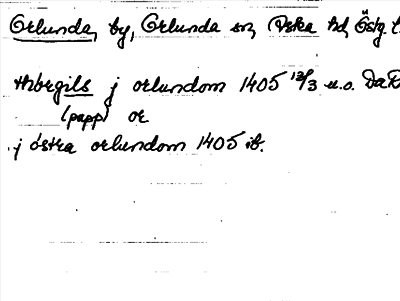 Örlunda, by, Örlunda sn, Aska hd, Östg. l.
thorgils j orlundom 1405 12/3 u.o. DaRA
(papp) or
j östra orlundom 1405 ib.